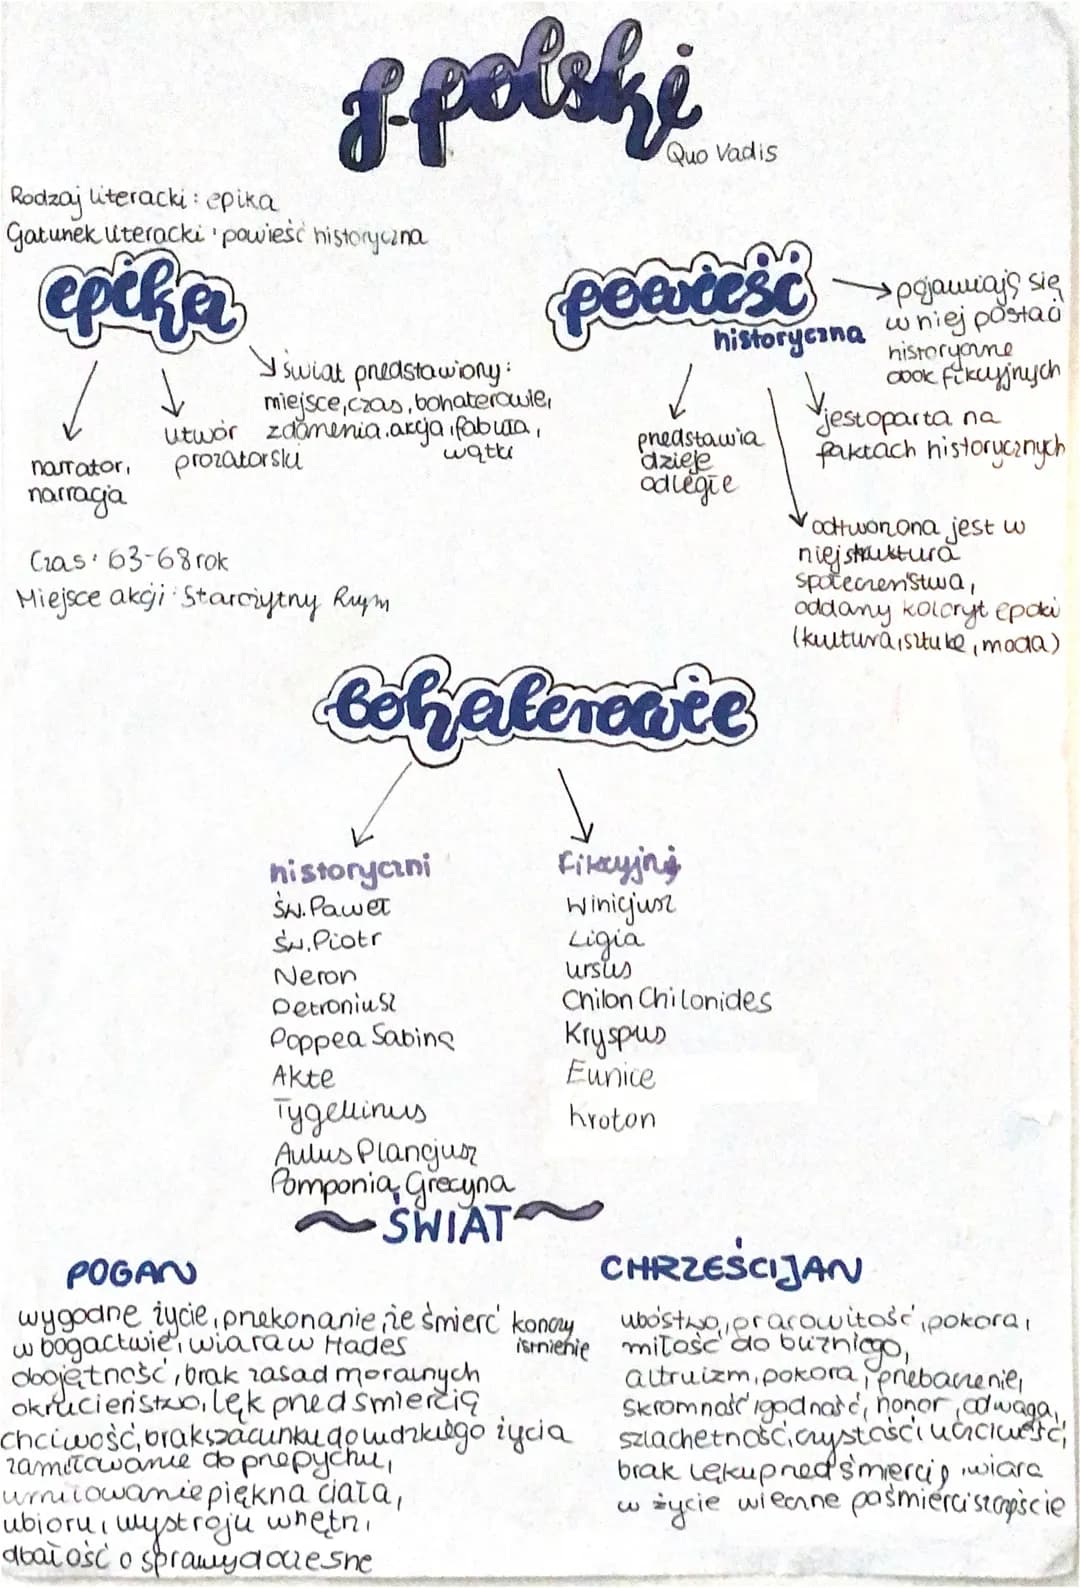 j.polski
Quo Vadis
Rodzaj literacki: epika
Gatunek literacki: powieść historyczna
epika
świat przedstawiony:
miejsce, czas, bohaterowie,
zdarzenia, akcja, fabuła,
wątki
utwór
prozatorski
narrator,
narracja
powieść
historyczna
pojawiają się
w niej postaci
historyczne
obok fikcyjnych
jest oparta na
faktach historycznych
przedstawia
dzieje
odległe
odtworzona jest w
niej struktura
społeczeństwa,
oddany koloryt epoki
(kultura, sztukę, moda)
Czas: 63-68 rok
Miejsce akcji: Starożytny Rzym
bohaterowie
historyczni
Św. Paweł
Św. Piotr
Neron
Petroniusz
Poppea Sabina
Akte
Tygellinus
Aulus Plancjusz
Pomponia Grecyna
fikcyjni
Winicjusz
Ligia
ursus
Chilon Chilonides
Kryspus
Eunice
kroton
ŚWIAT
POGAN
wygodne życie, przekonanie, że śmierć kończy istnienie
w bogactwie, wiara w Hades
obojętność, brak zasad moralnych
okrucieństwo, lęk przed śmiercią
chciwość, brak szacunku do ludzkiego życia
zamiłowanie do przepychu,
umiłowanie piękna ciała,
ubioru, wystroju wnętrz,
dbałość o sprawy doczesne
CHRZEŚCIJAN
ubóstwo, pracowitość, pokora,
miłość do bliźniego,
altruizm, pokora, przebaczenie,
skromność, godność, honor, odwaga,
szlachetność, czystość i uczciwość,
brak lęku przed śmiercią, wiara
w życie wieczne po śmierci szczęście